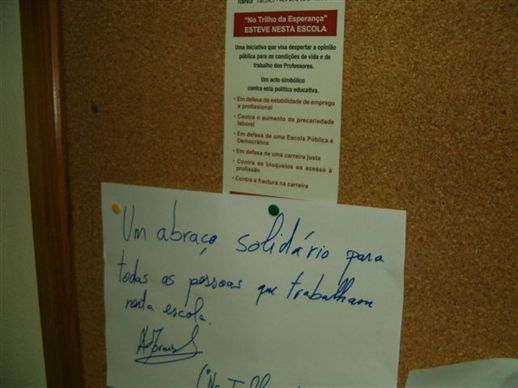 "No Trilho da Esperança"
ESTEVE NESTA ESCOLA
Uma iniciativa que visa despertar a opinião
pública para as condições de vida e de
trabalho dos Professores.
Um acto simbólico
contra esta política educativa.
• Em defesa da estabilidade de emprego
e profissional
• Contra o aumento da precariedade
laboral
• Em defesa de uma Escola Pública e
Democrática
• Em defesa de uma carreira justa
• Contra os bloqueios ao acesso à
profissão
• Contra a fractura na carreira
Um abraço solidário para
todas as pessoas que trabalham
nesta escola.